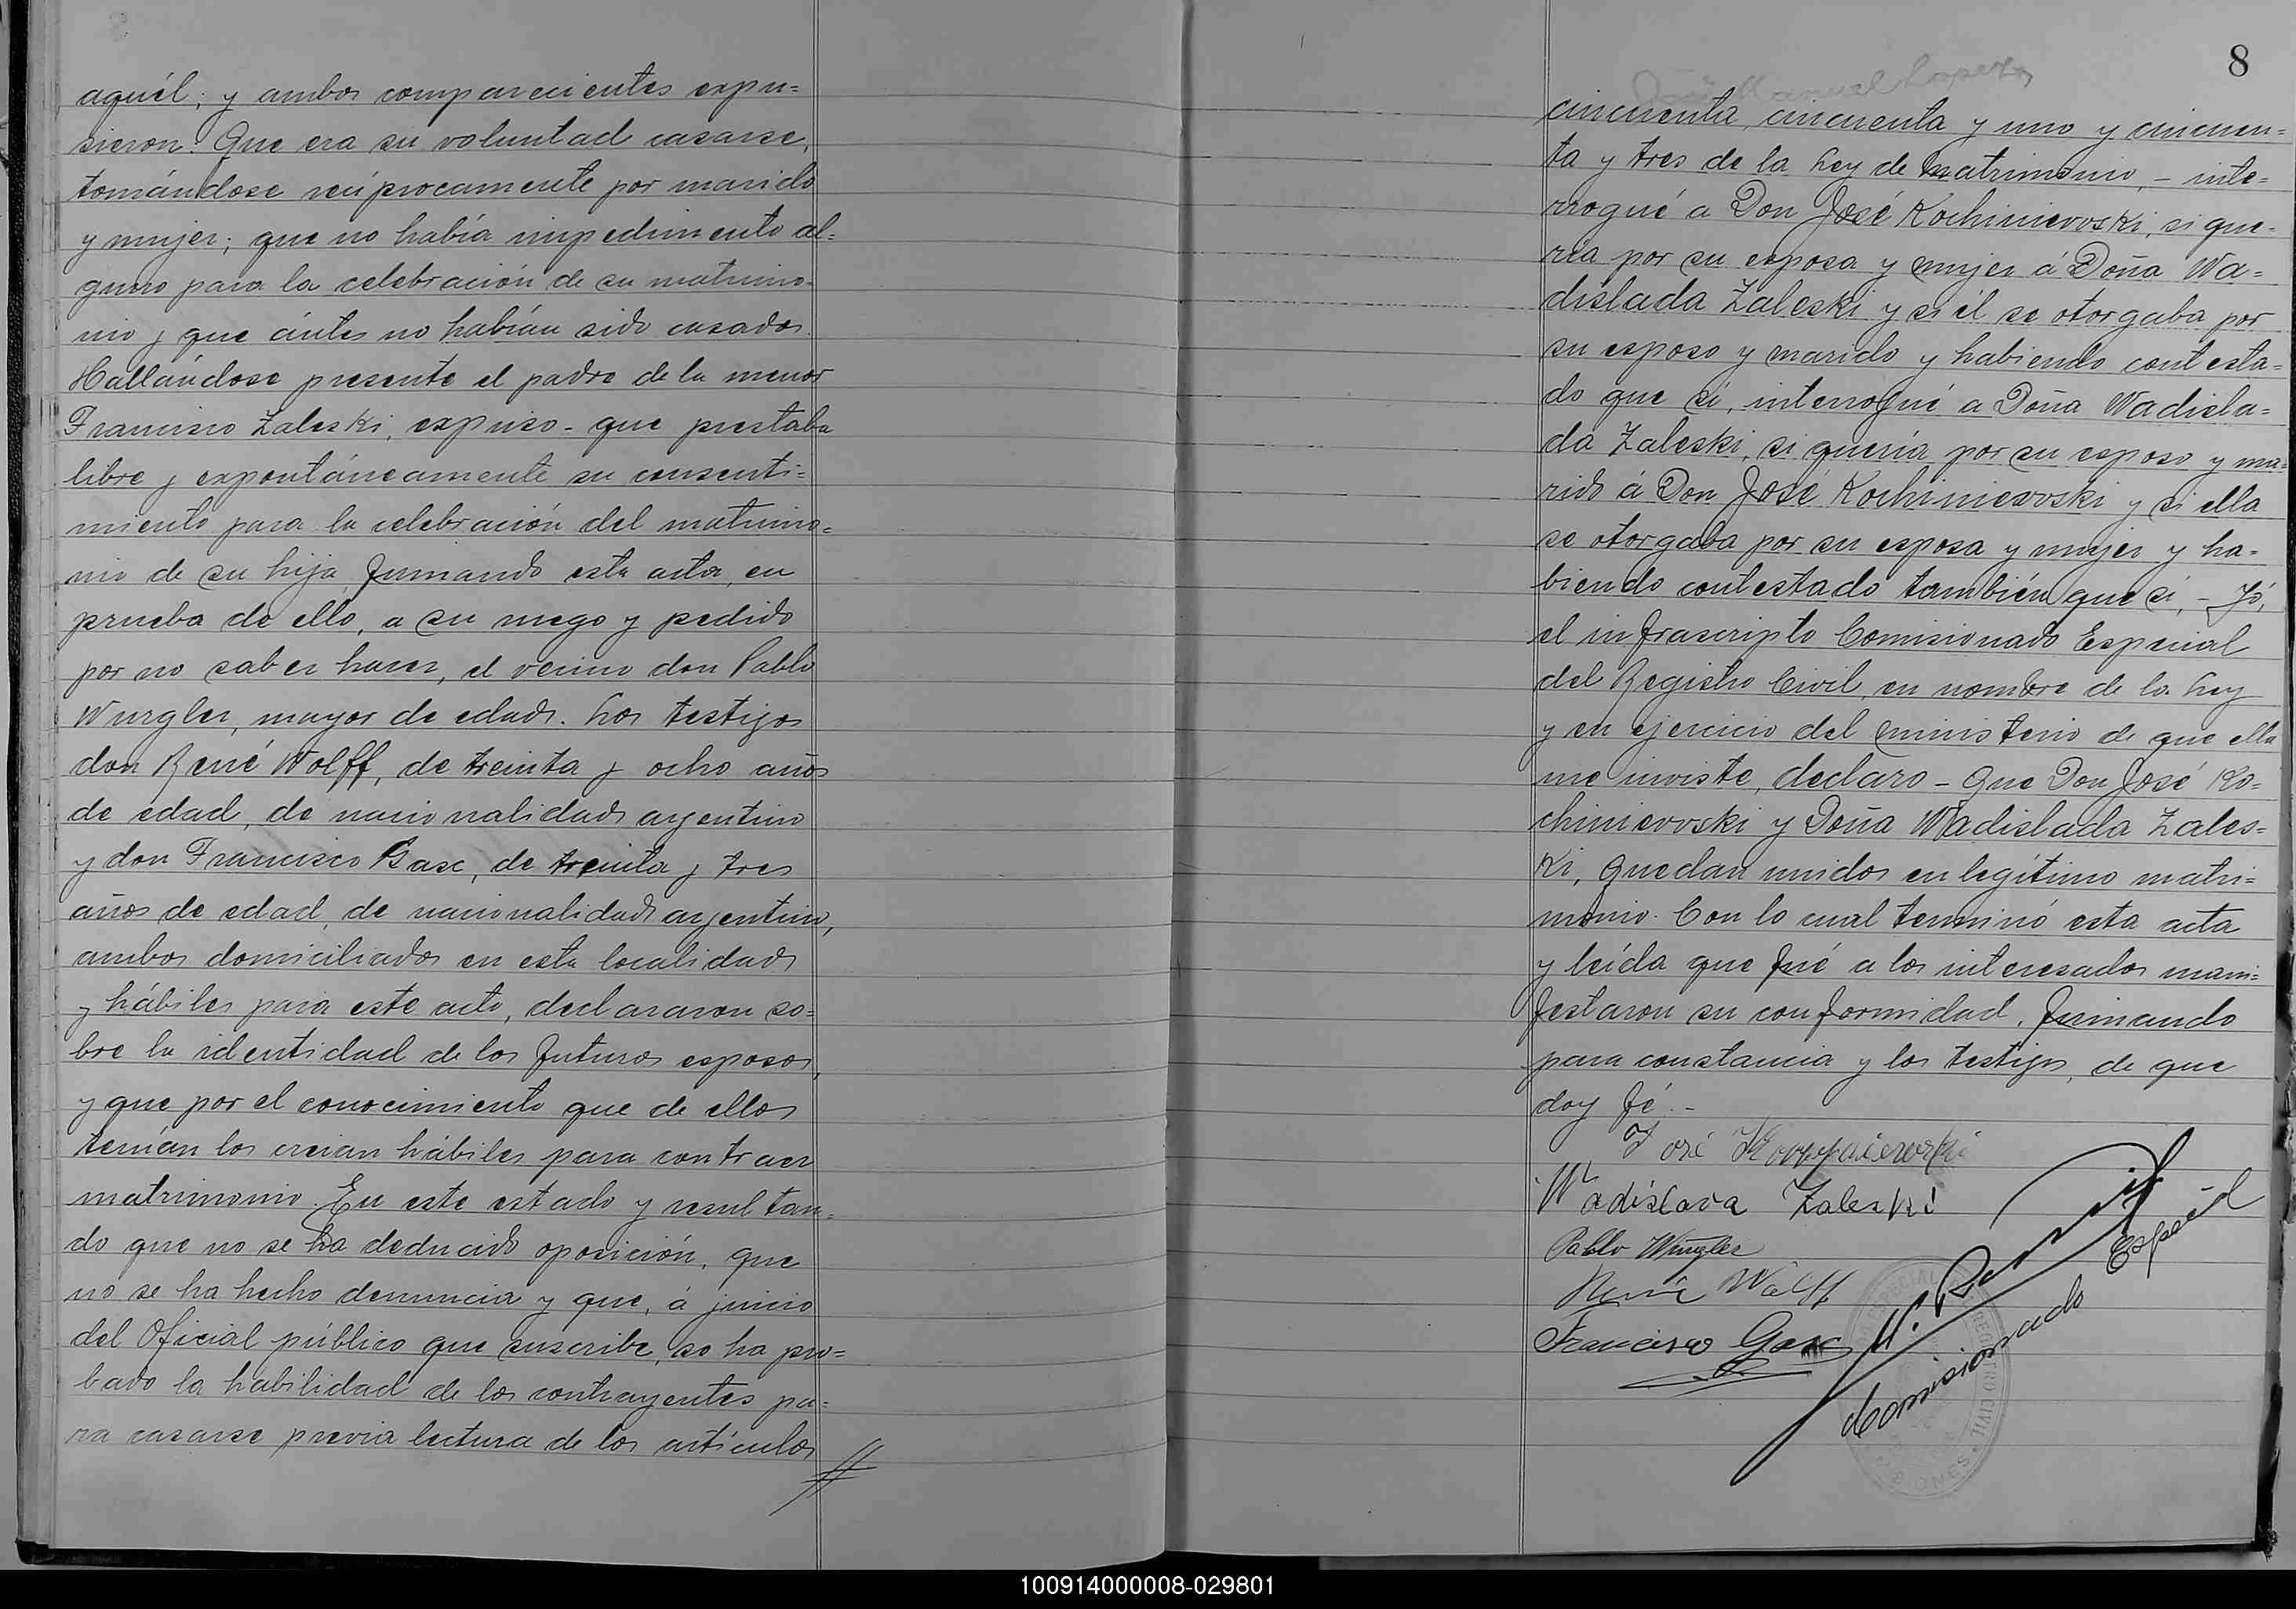 aquél; y ambos comparecientes expu=
sieron: Que era su voluntad casarse,
tomándose recíprocamente por marido
y mujer; que no había impedimento al=
guno para la celebración de su matrimo=
nio y que ántes no habían sido casados.
Hallándose presente el padre de la menor
Francisco Zaleski, expuso - que prestaba
libre y expontáneamente su consenti=
miento para la celebración del matrimo=
nio de su hija firmando esta acta, en
prueba de ello, a su ruego y pedido
por no saber hacer, el vecino don Pablo
Wurgler, mayor de edad. Los testigos
don René Wolff, de treinta y ocho años
de edad, de nacionalidad argentino
y don Francisco Gasc, de treinta y tres
años de edad, de nacionalidad argentino,
ambos domiciliados en esta localidad
y hábiles para este acto, declararon so=
bre la identidad de los futuros esposos,
y que por el conocimiento que de ellos
tenían los creían hábiles para contraer
matrimonio. En este estado y resultan=
do que no se ha deducido oposición, que
no se ha hecho denuncia y que, á juicio
del Oficial público que suscribe, se ha pro=
bado la habilidad de los contrayentes pa=
ra casarse previa lectura de los artículos
8
cincuenta, cincuenta y uno y cincuen=
ta y tres de la Ley de Matrimonio, - inte=
rrogué a Don José Kochinievoski, si que=
ría por su esposa y mujer á Doña Wa=
dislada Zaleski y si él se otorgaba por
su esposo y marido y habiendo contesta=
do que sí, interrogué a Doña Wadisla=
da Zaleski, si quería por su esposo y ma=
rido á Don José Kochinievoski y si ella
se otorgaba por su esposa y mujer y ha=
biendo contestado también que sí, - Yó,
el infrascripto Comisionado Especial
del Registro Civil, en nombre de la Ley
y en ejercicio del ministerio de que ella
me inviste, declaro - Que Don José Ko=
chinievoski y Doña Wadislada Zales=
ki, quedan unidos en legítimo matri=
monio. Con lo cual terminó esta acta
y leída que fué a los interesados mani=
festaron su conformidad, firmando
para constancia y los testigos, de que
doy fé.-
José
Wadislava Zaleski
Pablo Wurgler
René Wolff
Francisco Gasc
Comisionado Especial
REGISTRO CIVIL
MISIONES
100914000008-029801